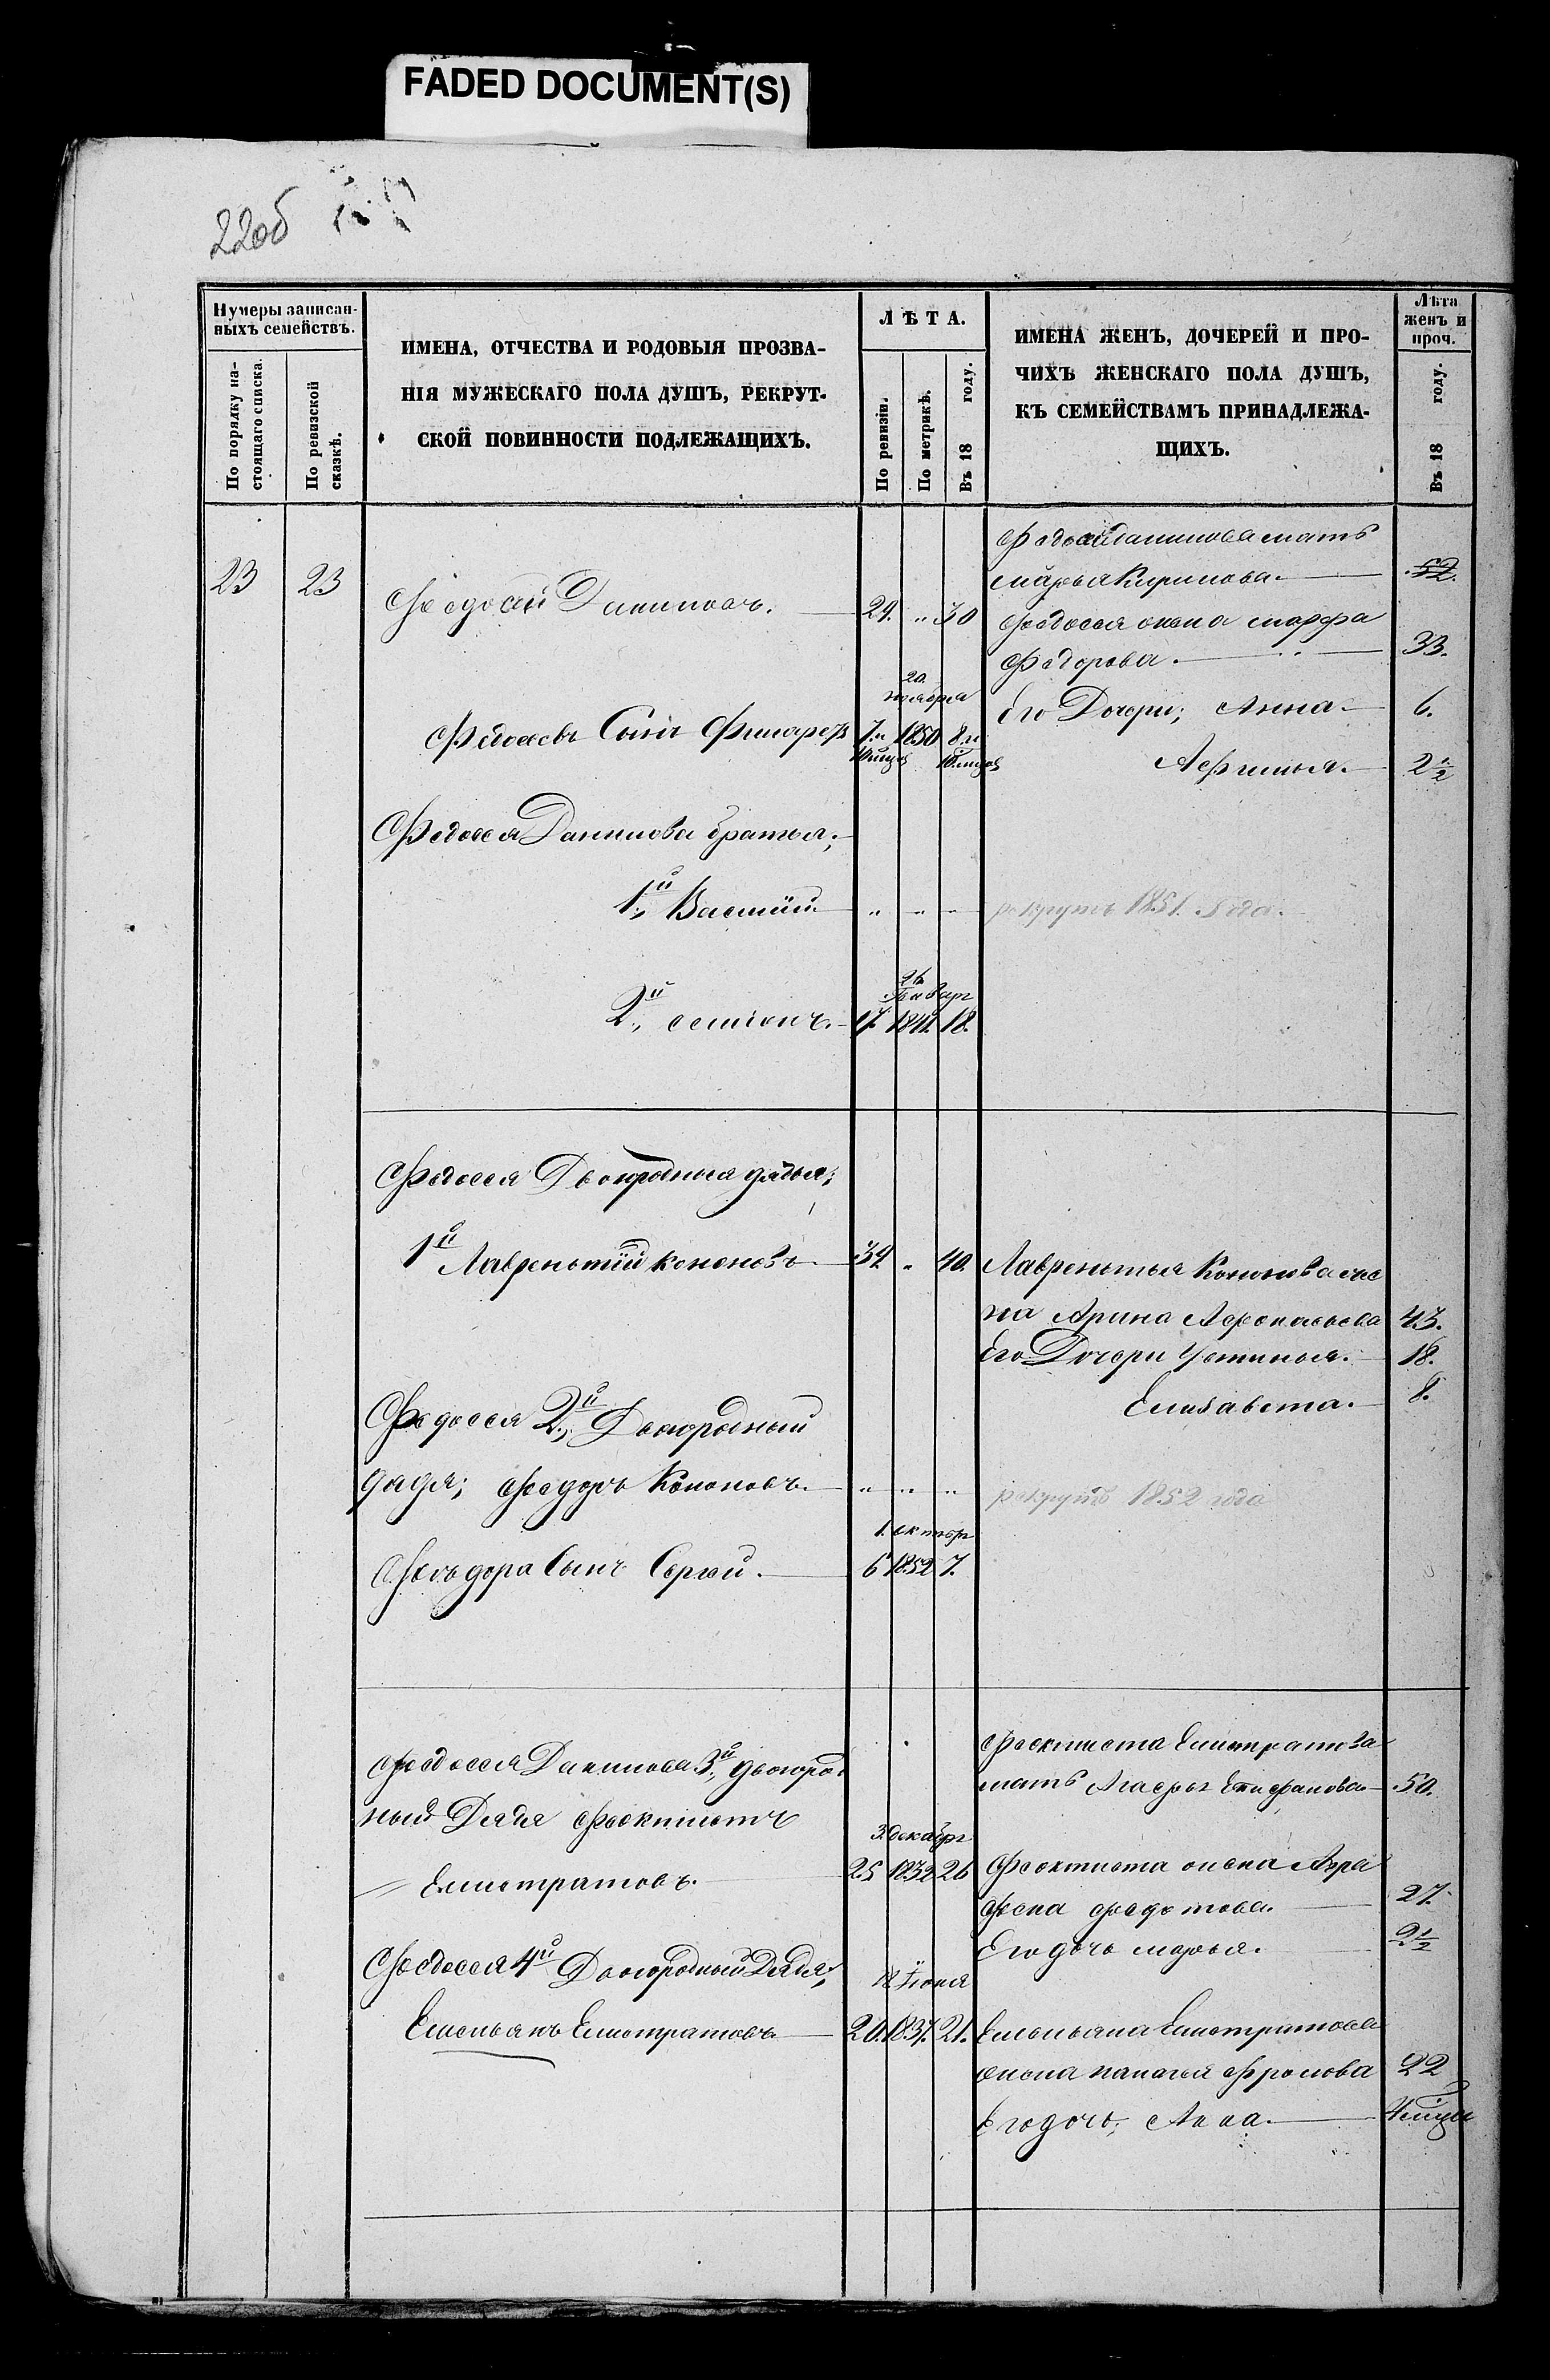 FADED DOCUMENT(S)
22об
Нумеры записан-
ныхъ семействъ.
По порядку на-
стоящаго списка.
По ревизской
сказкѣ.
ИМЕНА, ОТЧЕСТВА И РОДОВЫЯ ПРОЗВА-
НІЯ МУЖЕСКАГО ПОЛА ДУШЪ, РЕКРУТ-
СКОЙ ПОВИННОСТИ ПОДЛЕЖАЩИХЪ.
ЛѢТА.
По ревизіи.
По метрикѣ.
Въ 18 году.
ИМЕНА ЖЕНЪ, ДОЧЕРЕЙ И ПРО-
ЧИХЪ ЖЕНСКАГО ПОЛА ДУШЪ,
КЪ СЕМЕЙСТВАМЪ ПРИНАДЛЕЖА-
ЩИХЪ.
Лѣта
женъ и
проч.
Въ 18 году.
Федосей Данилова мать
марья Кирилова. 52.
23 23 Феодосѣй Даниловъ. 29. " 30
Феодосея жена марфа
Федорова. 33.
20
ноября
Федосевъ Сынъ Филаретъ 7. 1850 8
10 мцов 10 мцов
Его Дочери; Анна 6.
Афимья. 2 1/2
Федосея Данилова братья;
1й Василий " " " рекрутъ 1851. года.
26
Генваря
2й семионъ. 17. 1841. 18.
Федосея Двоюродныя дядья;
1й Лаврентий кононовъ 39 " 40.
Лаврентья Кононова же
на Арина Афонасьева 43.
Его Дочери Устинья. 18.
Елизавета. 8.
Феодосея 2й Двоюродный
дядя; федоръ Кононовъ. " " " рекрутъ 1852 года
1. октябр
Фельдора Сынъ Сергѣй. 6 1852 7.
Феодосея Данилова 3й двоюрод
ный Дядя Феоктистъ
3 декабря
Елистратовъ. 25 1832 26
Феоктиста Елистратова
мать Агафья Епифанова 50.
Феоктиста жена Агра
фена федотова. 27.
Его дочь марья. 2 1/2
Феодосея 4й Двоюродный Дядя;
18 Іюня
Емельянъ Елистратовъ 20. 1837. 21.
Емельяна Елистратова
жена палагея Фролова 22
Его дочь; Анна. 4 мцы